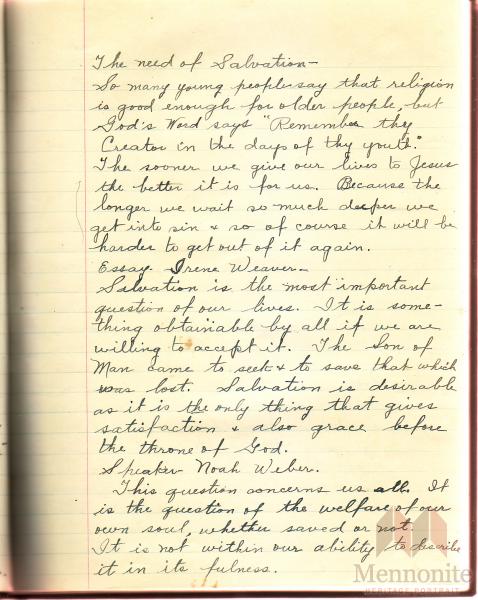 The need of Salvation-
So many young people say that religion
is good enough for older people, but
God's Word says "Remember thy
Creator in the days of thy youth."
The sooner we give our lives to Jesus
the better it is for us. Because the
longer we wait so much deeper we
get into sin & so of course it will be
harder to get out of it again.
Essay. Irene Weaver-
Salvation is the most important
question of our lives. It is some-
thing obtainable by all if we are
willing to accept it. The Son of
Man came to seek & to save that which
was lost. Salvation is desirable
as it is the only thing that gives
satisfaction & also grace before
the throne of God.
Speaker Noah Weber.
This question concerns us all. It
is the question of the welfare of our
own soul, whether saved or not.
It is not within our ability to describe
it in its fulness.
Mennonite
HERITAGE PORTRAIT